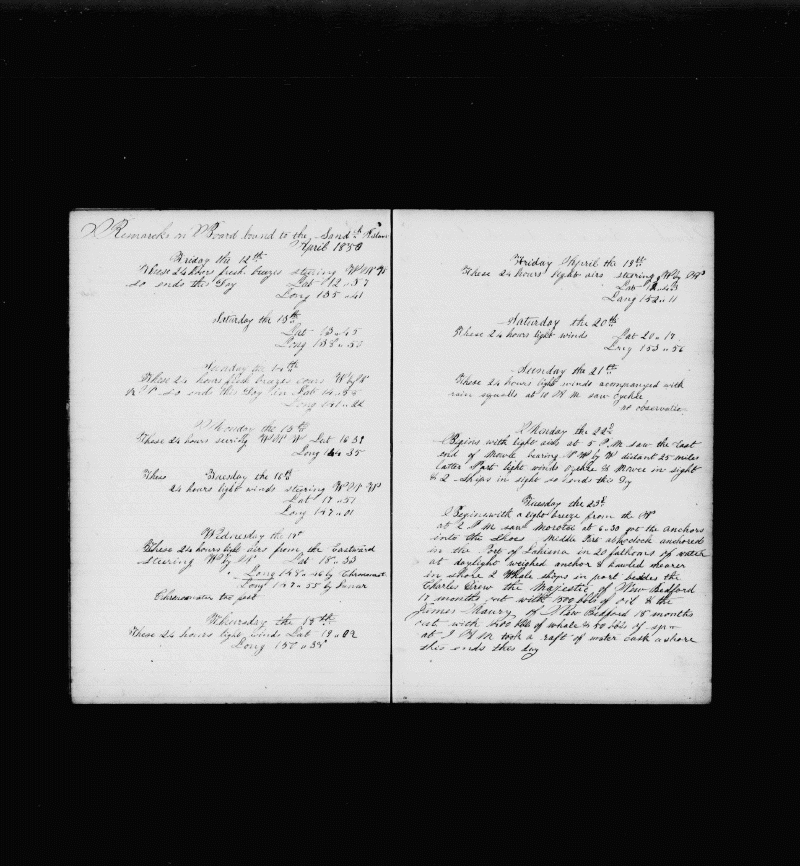 Remarcks on Board bound to the Sandh Islans
April 1850
Friday the 12th
These 24 hours fresh breezes steering W N W
so ends this Day Lat 12 " 57
Long 135 " 41
Saturday the 13th
Lat 13 " 45
Long 138 " 53
Sunday the 14th
These 24 hours fresh brezes cours W by N
so ends this Day
Monday the 15th
These 24 hours W N W Lat 16 39
Long 144 35
Thees Tuesday the 16th
24 hours light winds stearing W N W
Lat 17 " 51
Long 147 " 01
Wednesday the 17
These 24 hours light airs from the Eastward
steering W by N Lat 18 " 33
Long 148 " 46 by Chronomet
Long 147 " 55 by Lunar
Chronometer too fast
Thursday the 18th
These 24 hours light winds Lat 19 " 02
Long 150 " 38
Friday April the 19th
These 24 hours light airs steering W by N
Lat 19 " 43
Lang 152 " 11
Saturday the 20th
These 24 hours light winds Lat 20 " 17
Long 153 " 56
Sunday the 21st
These 24 hours light winds acompanged with
rain squalls at 10 A M saw
no observation
Munday the 22d
Begins with light airs at 5 P.M. saw the East
end of Mowee bearing by W distant 25 miles
Latter Part light winds & Mowee in sight
& 2 ships in sight so hends this Dy
Tuesday the 23d
Begins with a light breeze from the N
at 2 P M saw Morotoi at 6-30 got the anchors
into the shoes Middle Part anchored
in the Port of Lahiena in 20 fathoms of water
at daylight weighed anchor & hawled nearer
in shore 2 Whale ships in port besides the
Charles Drew the Majestic of New Bedford
17 months out with 1500 bbls of oil & the
James Maury of New Bedford 18 months
out with 1400 bbls of whale & 80 bbls of
at 1 P M took a raft of water cask ashore
this ends this day